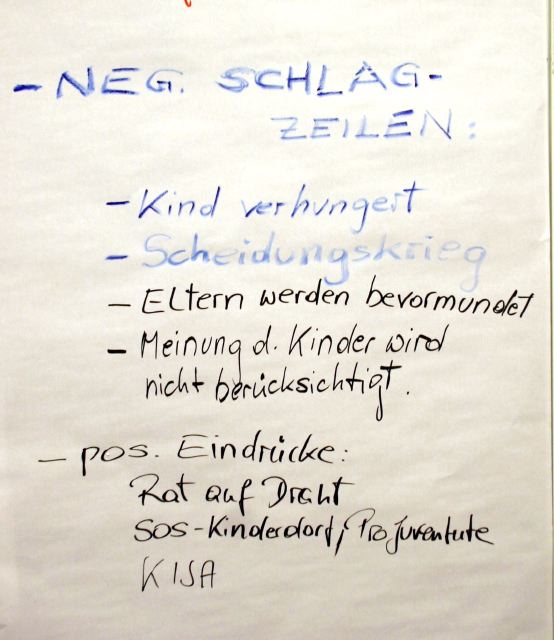 - NEG. SCHLAG-
ZEILEN:
- Kind verhungert
- Scheidungskrieg
- Eltern werden bevormundet
- Meinung d. Kinder wird
nicht berücksichtigt.
- pos. Eindrücke:
Rat auf Draht
SOS-Kinderdorf, Pro Juventute
KISA